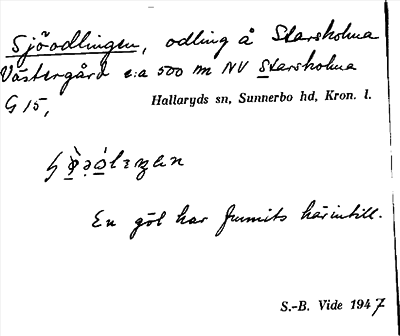 Sjöodlingen, odling å Starsholma
Västergård c:a 500 m NV Starsholma
G 15,
Hallaryds sn, Sunnerbo hd, Kron. l.
En göl har funnits härintill.
S.-B. Vide 1947